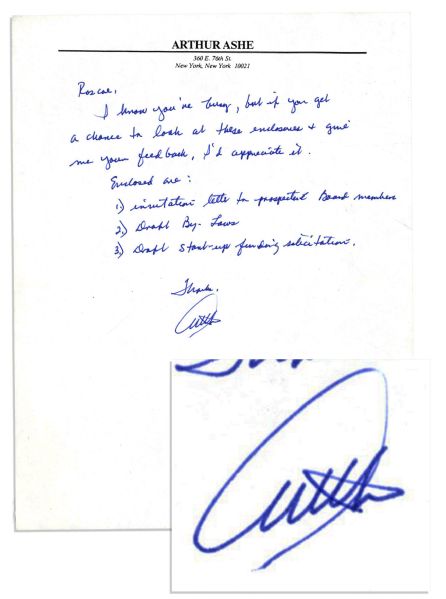 ARTHUR ASHE
360 E. 76th St.
New York, New York 10021
Roscoe,
I know you're busy, but if you get
a chance to look at these enclosures & give
me your feedback, I'd appreciate it.
Enclosed are:
1.) invitation letter to prospected Board members
2.) Draft By-Laws
3.) Draft start-up funding solicitation.
Thanks.
Arthur
Arthur